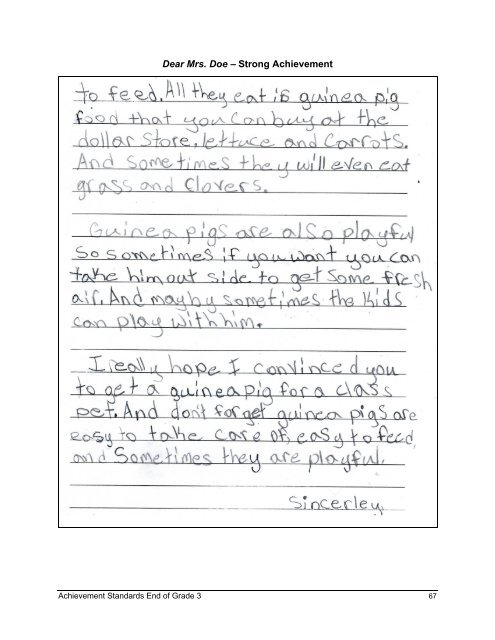 Dear Mrs. Doe – Strong Achievement
to feed. All they eat is guinea pig
food that you can buy at the
dollar store, lettuce and carrots.
And sometimes they will even eat
grass and clovers.
Guinea pigs are also playful
so sometimes if you want you can
take him out side to get some fresh
air. And mayby sometimes the kids
can play with him.
I really hope I convinced you
to get a guinea pig for a class
pet. And don't forget guinea pigs are
easy to take care of, easy to feed,
and sometimes they are playful.
Sincerley,
Achievement Standards End of Grade 3 67